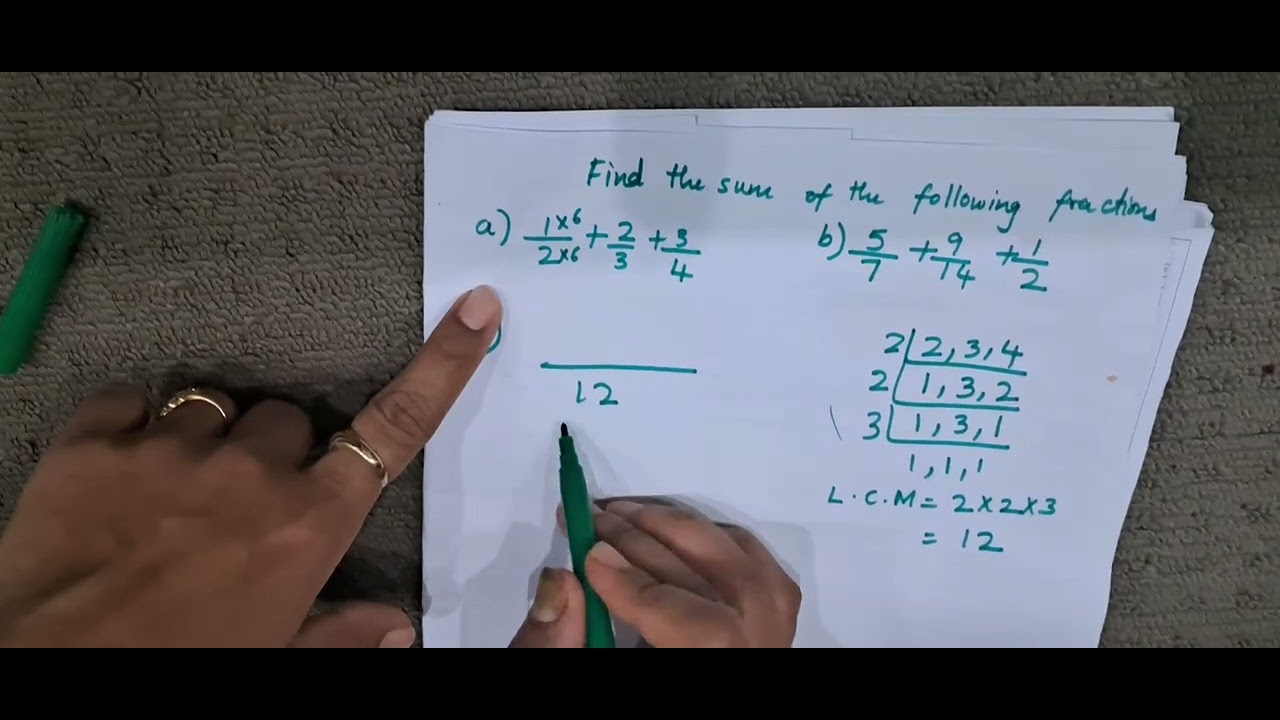 Find the sum of the following fractions
a) 1×6/2×6 + 2/3 + 3/4
b) 5/7 + 9/14 + 1/2
12
2 2, 3, 4
2 1, 3, 2
3 1, 3, 1
1, 1, 1
L.C.M = 2×2×3
= 12